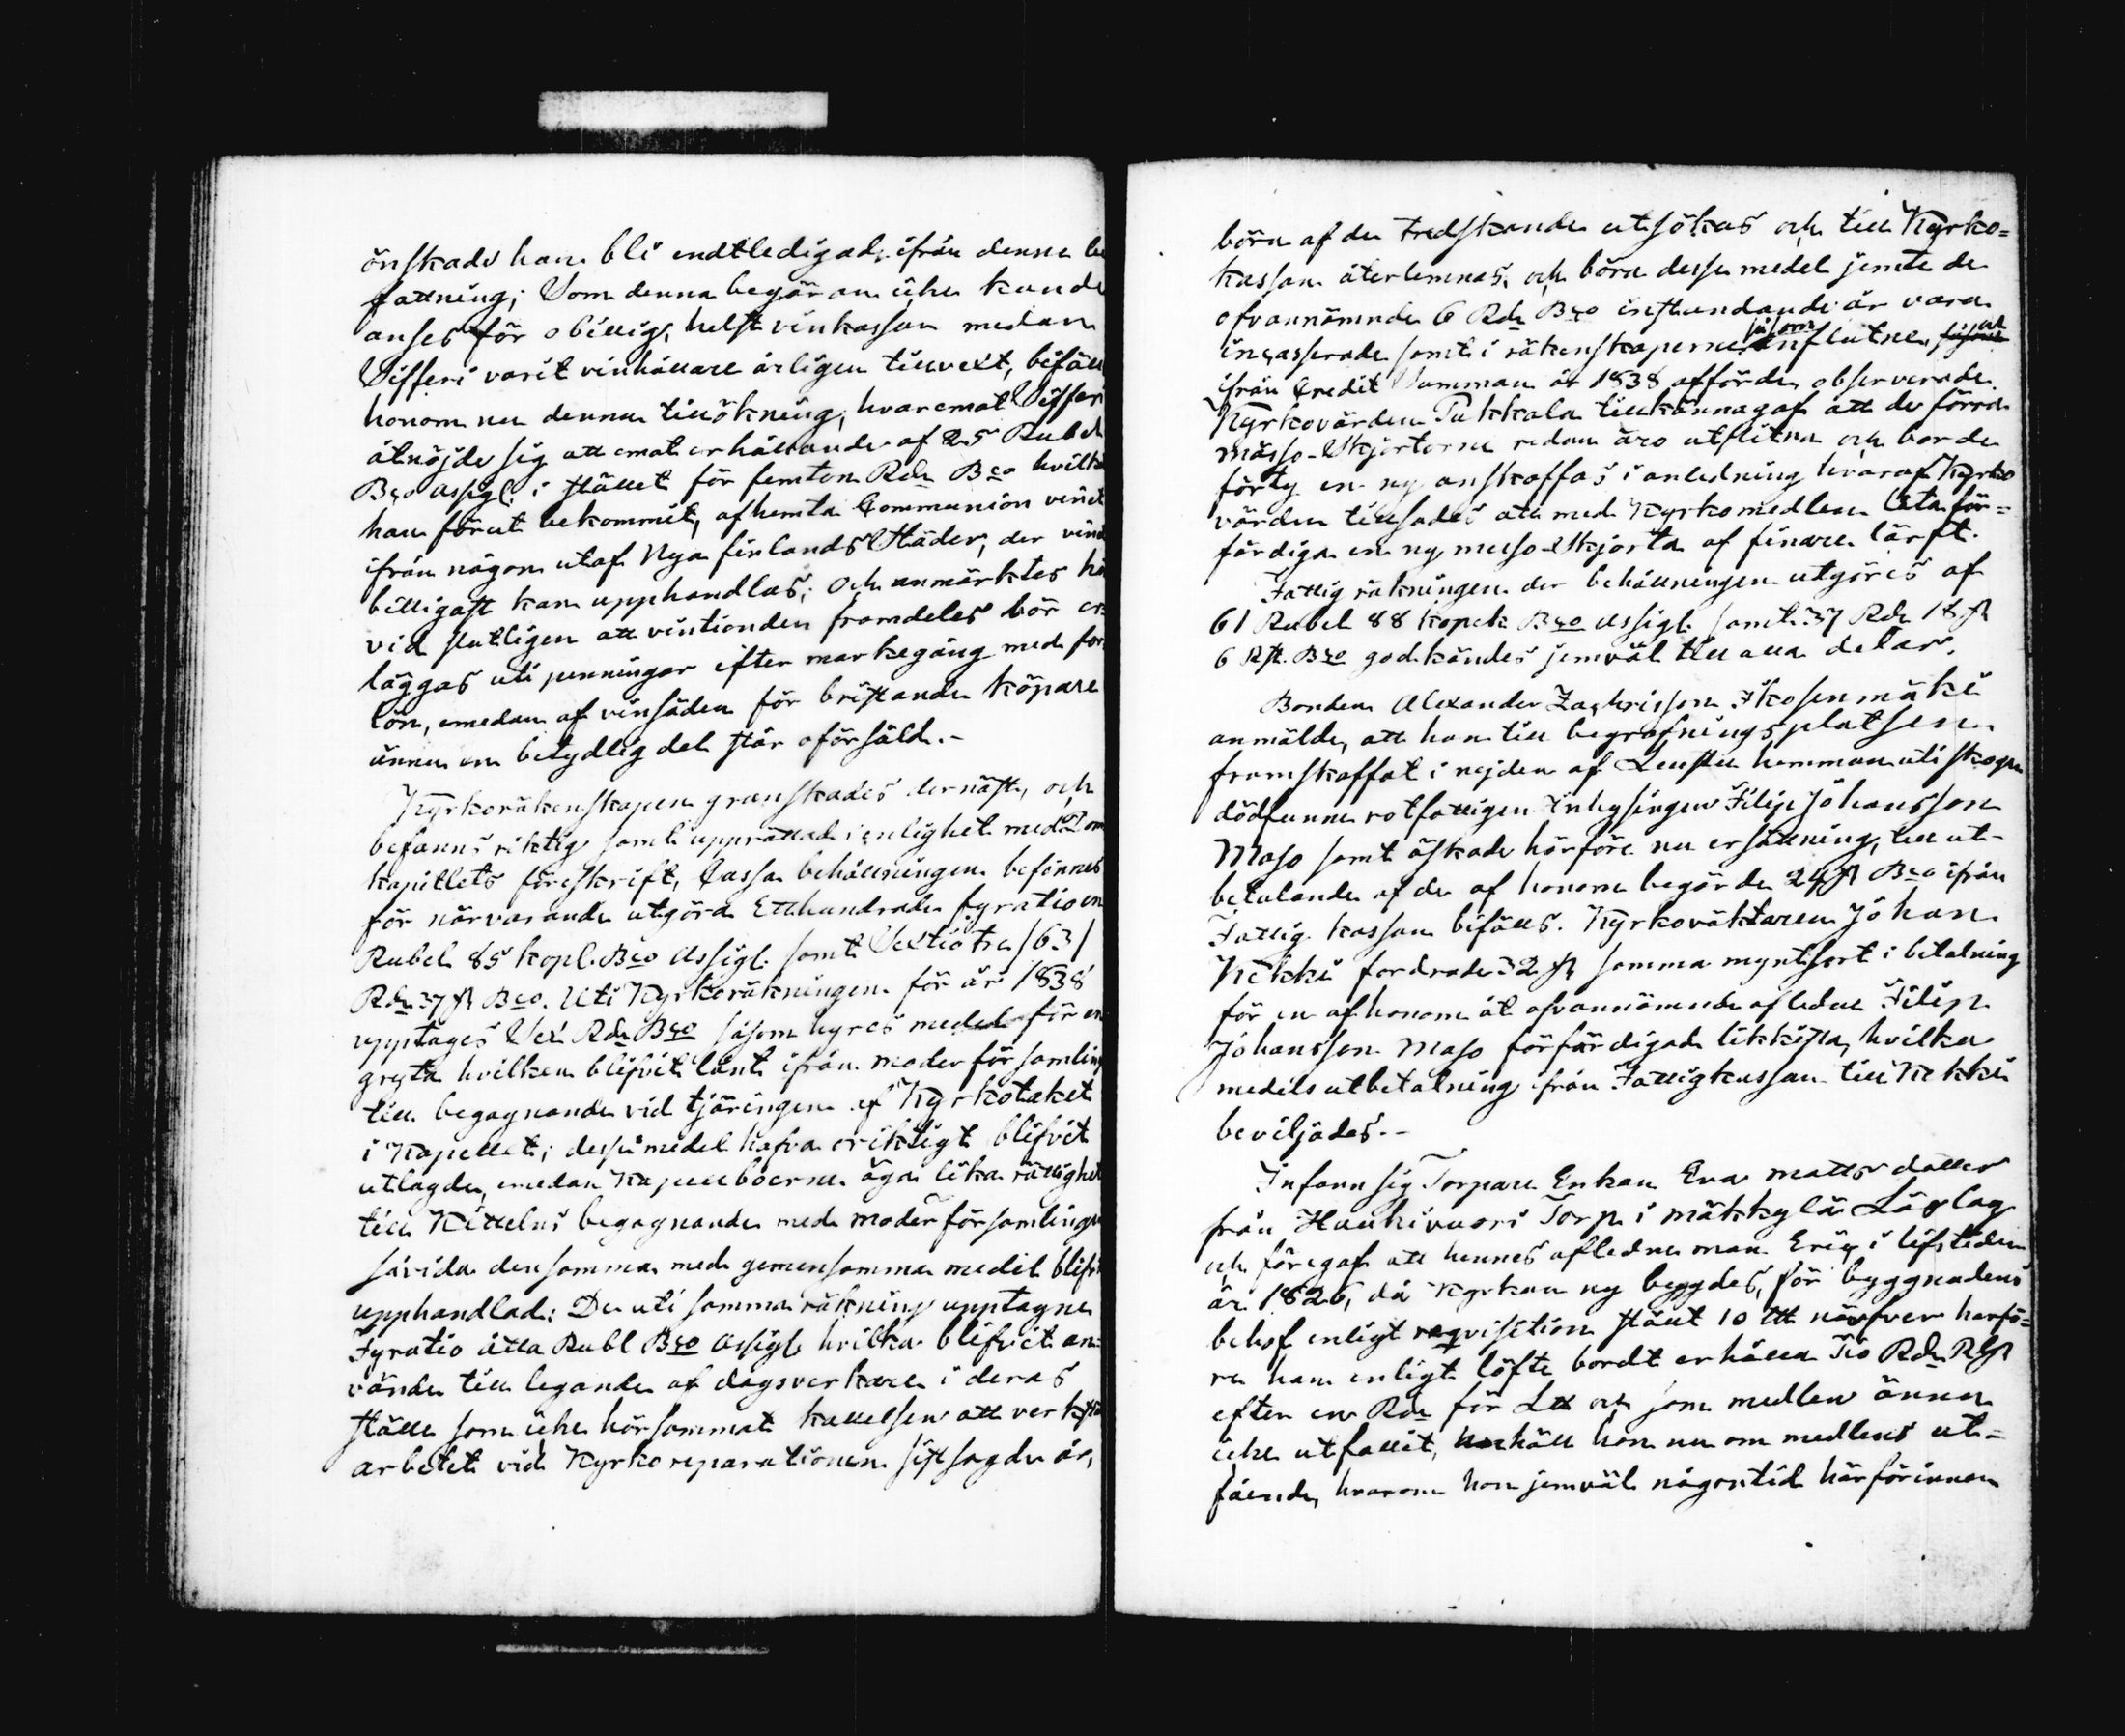 önskade han bli endtledigad ifrån denne be
fattning; Som denna begäran icke kunde
anses för obillig, helst vinkassan medan
Sifferi varit vinhållare årligen tillvext, bifälls
honom nu denna tillökning, hvaremot Sifferi
åtnöjde sig att emot erhållande af 25 Rubel
Bco assigl. i stället för femton Rdr Bco hvilka
han förut bekommit, afhemta Communion vinet
ifrån någon utaf Nya finlands Städer, der vinet
billigast kan upphandlas; och anmärktes här
vid slutligen att vintionden framdeles bör er
läggas uti penningar efter markegång med for
lön, emedan af vinsäden för bristande köpare
ännu en betydlig del står oförsåld.-
Kyrkoräkenskapen granskades dernäst, och
befanns riktig samt upprättad i enlighet med Dom
kapitlets föreskrift, Cassa behållningen befinnes
för närvarande utgöra Etthundrade fyratioen
Rubel 85 kopk. Bco Assigl. samt Sextiotre /63/
Rdr 37 ß Bco. Uti Kyrkoräkningen för år 1838
upptages Sex Rdr Bco såsom hyres medel för en
gryta hvilken blifvit lånt ifrån moder församling
till begagnande vid tjäringen af Kyrkotaket
i Kapellet; desse medel hafva oriktigt blifvit
utlagde, emedan Kapellboerne äga lika rättighet
till Kittelns begagnande med moder församlingen
såvida densamma med gemensamma medel blifvit
upphandlad: De uti samma räkning upptagne
Fyratio åtta Rubl Bco Assigl. hvilka blifvit an-
vände till legande af dagsverkare i deras
ställe som icke hörsammat kallelsen att verkställa
arbetet vid Kyrkoreparationen sistsagde år,
böra af de tredskande utsökas och till Kyrko=
kassan återlemnas, och böra desse medel jemte de
ofvannämnde 6 Rdr Bco instundande år vara
incasserade samt i räkenskaperne såsom influtne, och
ifrån Credit Summan år 1838 afförde, observerade.
Kyrkovärden Pukkala tillkännagaf att de förra
mässo-Skjortorne redan äro utslitna och borde
förty en ny anskaffas i anledning hvaraf Kyrko
värden tillsades att med Kyrkomedlen låta för=
färdiga en ny messo-Skjorta af finare lärft.
Fattig räkningen der behållningen utgöres af
61 Rubel 88 kopek Bco Assigl. samt 37 Rdr 18 ß
6 Rst. Bco godkändes jemväl till alla delar.
Bonden Alexander Zachrisson Ikosenmäki
anmälde, att han till begrafningsplatsen
framskaffat i nejden af hemman uti skogen
dödfunne rotfattigen Inhysingen Filip Johansson
Maso samt äskade härföre nu ersättning, till ut-
betalande af de af honom begärde 24 ß Bco ifrån
Fattig kassan bifölls. Kyrkoväktaren Johan
Kekki fordrade 32 ß samma myntsort i betalning
för en af honom åt ofvannämnde afledne Filip
Johansson Maso förfärdigad likkista, hvilka
medels utbetalning ifrån Fattigkassan till Kekki
beviljades.-
Infann sig Torpare Enkan Eva Matts dotter
från Haukivuori Torp i Mäkkylä Läslag
och föregaf att hennes afledne man Eric i lifstiden
år 1826, då Kyrkan ny byggdes, för byggnadens
behof enligt reqvisition stält 10 näfver härfö=
re han enligt löfte bordt erhålla Tio Rdr Rgs
efter en Rdr för och som medlen ännu
icke utfallit, höll hon nu om medlens ut=
fående, hvarom hon jemväl någontid härförinnan